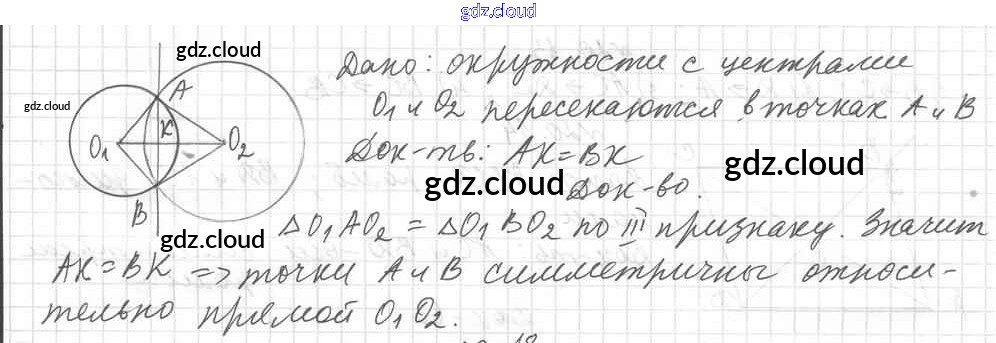 gdz.cloud
gdz.cloud
gdz.cloud
A
K
O1
O2
B
Дано: окружности с центрами
O1 и O2 пересекаются в точках A и B
Док-ть: AK=BK
gdz.cloud
gdz.cloud
Док-во.
gdz.cloud
△O1AO2 = △O1BO2 по III признаку. Значит
AK=BK => точки A и B симметричны относи-
тельно прямой O1O2.